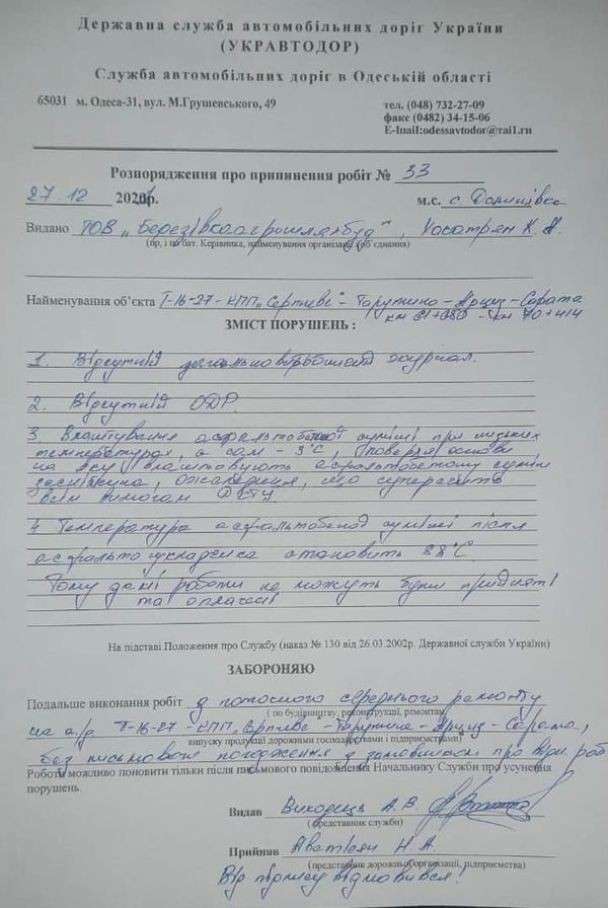 Державна служба автомобільних доріг України
(УКРАВТОДОР)
Служба автомобільних доріг в Одеській області
65031 м. Одеса-31, вул. М.Грушевського, 49
тел. (048) 732-27-09
факс (0482) 34-15-06
E-mail:odessavtodor@
Розпорядження про припинення робіт № 33
27.12 р. м.с. с.
Видано ТОВ „Березівкаагрошляхбуд",
(пр, і по бат. Керівника, найменування організації, об'єднання)
Найменування об'єкта Т-16-27-КПП „Серпневе"-Тарутино-Арциз-Сарата
км 70+414
ЗМІСТ ПОРУШЕНЬ :
1. Відсутній журнал.
2. Відсутній ОДР.
3 Влаштування асфальтобетонної суміші при низьких
температурах, а сам -3°С,
на яку влаштовують асфальтобетонну суміш
засніжена, що суперечить
всім вимогам ДСТУ
4 Температура асфальтобетон суміші після
асфальтоукладчика становить 88°С.
Тому дані роботи не можуть бути прийняті
та оплачені
На підставі Положення про Службу (наказ № 130 від 26.03.2002р. Державної служби України)
ЗАБОРОНЯЮ
Подальше виконання робіт з поточного середнього ремонту
( по будівництву, реконструкції, ремонтам
на а/д Т-16-27-КПП „Серпневе-Тарутине-Арциз-Сарата,
випуску продукції дорожніми господарствами і підприємствами)
без письмового погодження з замовником про
Роботи можливо поновити тільки після письмового повідомлення Начальнику Служби про усунення
порушень.
Видав А.В
(представник служби)
Прийняв Н.А.
(представник дорожньої організації, підприємства)
Від підпису відмовився!